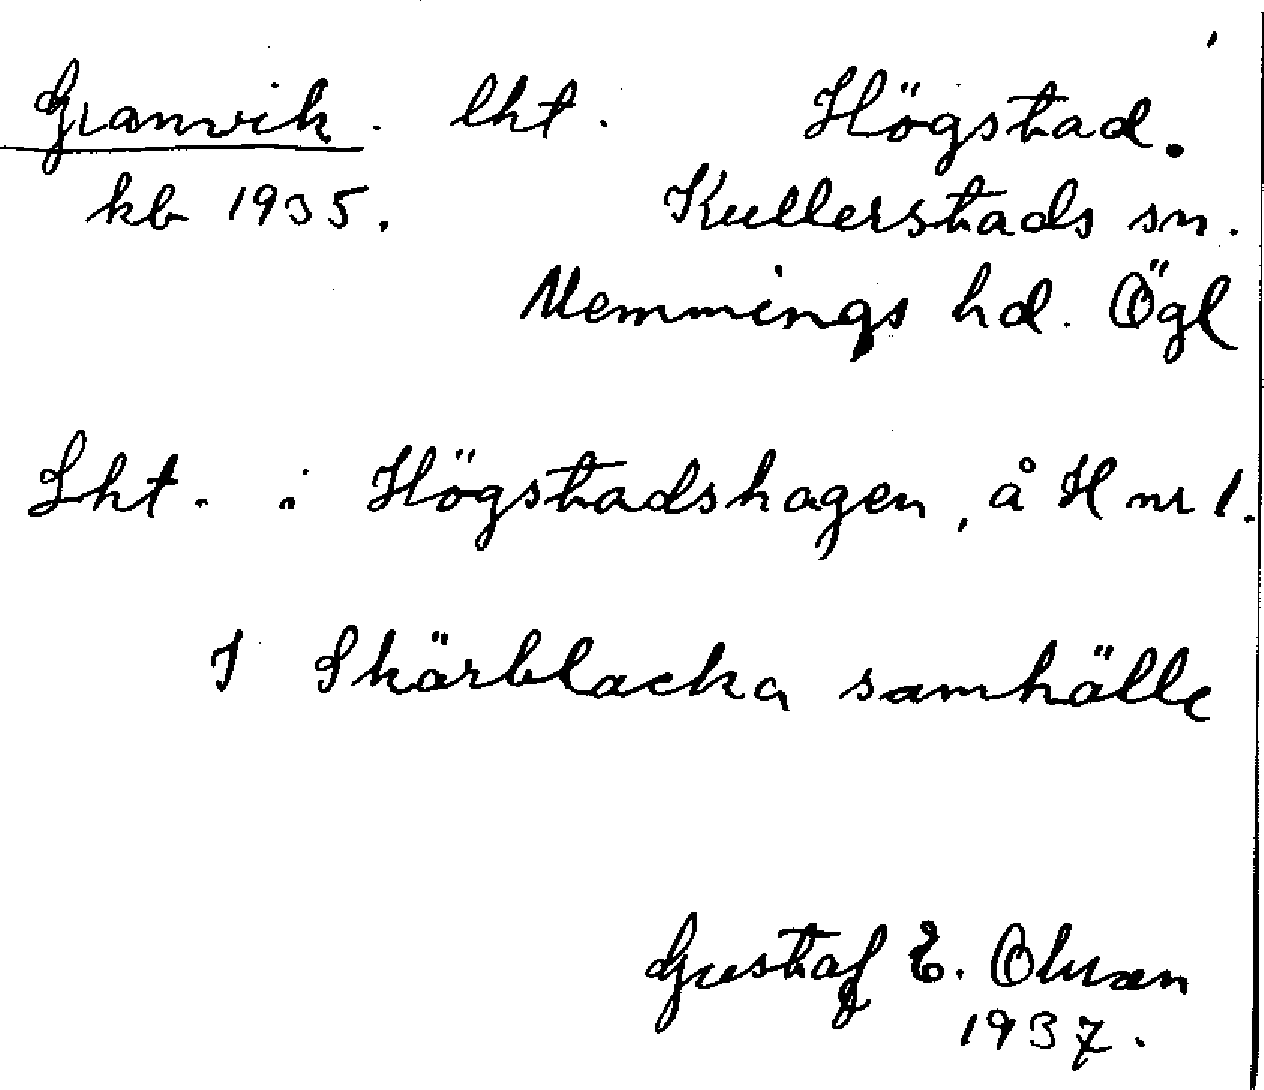 Granvik. lht. Högstad.
kb 1935. Kullerstads sn.
Memmings hd. Ögl
Lht. i Högstadshagen, å H nr 1.
I Skärblacka samhälle
Gustaf E. Olsson
1937.